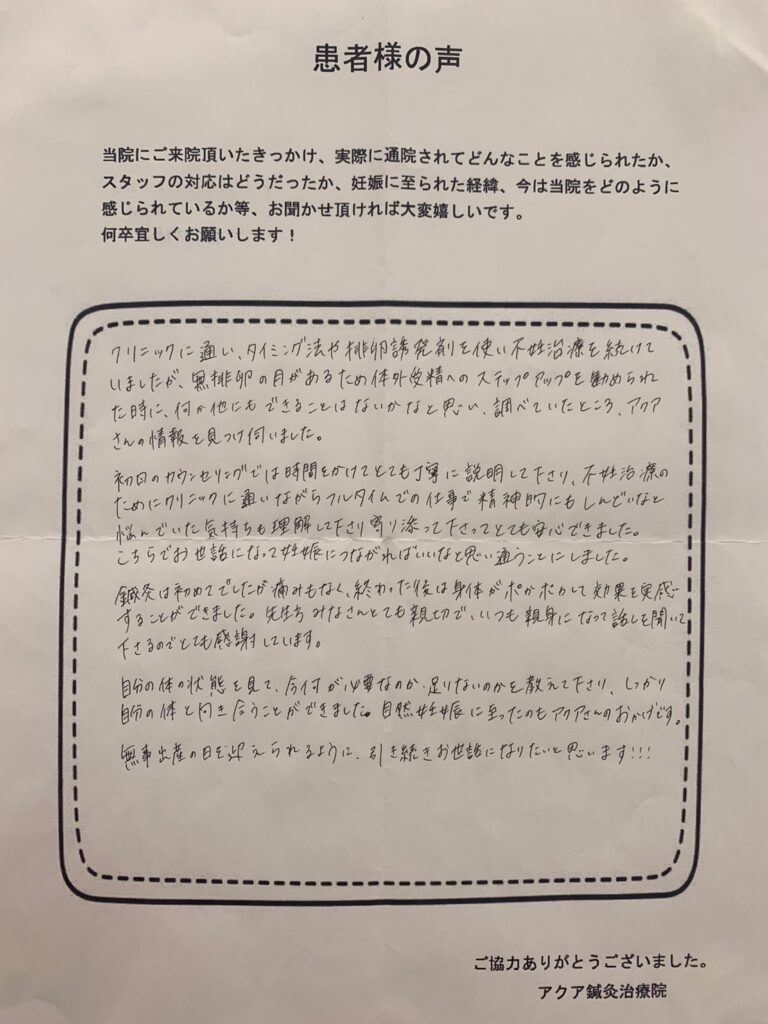 患者様の声
当院にご来院頂いたきっかけ、実際に通院されてどんなことを感じられたか、
スタッフの対応はどうだったか、妊娠に至られた経緯、今は当院をどのように
感じられているか等、お聞かせ頂ければ大変嬉しいです。
何卒宜しくお願いします！
クリニックに通い、タイミング法や排卵誘発剤を使い不妊治療を続けて
いましたが、無排卵の月があるため体外受精へのステップアップを勧められ
た時に、何か他にもできることはないかなと思い、調べていたところ、アクア
さんの情報を見つけ伺いました。
初回のカウンセリングでは時間をかけてとても丁寧に説明して下さり、不妊治療の
ためにクリニックに通いながらフルタイムでの仕事で精神的にもしんどいなと
悩んでいた気持ちも理解して下さり寄り添って下さってとても安心できました。
こちらでお世話になって妊娠につながればいいなと思い通うことにしました。
鍼灸は初めてでしたが痛みもなく、終わった後は身体がポカポカして効果を実感
することができました。先生方みなさんとても親切で、いつも親身になって話しを聞いて
下さるのでとても感謝しています。
自分の体の状態を見て、今何が必要なのか、足りないのかを教えて下さり、しっかり
自分の体と向き合うことができました。自然妊娠に至ったのもアクアさんのおかげです。
無事出産の日を迎えられるように、引き続きお世話になりたいと思います!!!
ご協力ありがとうございました。
アクア鍼灸治療院